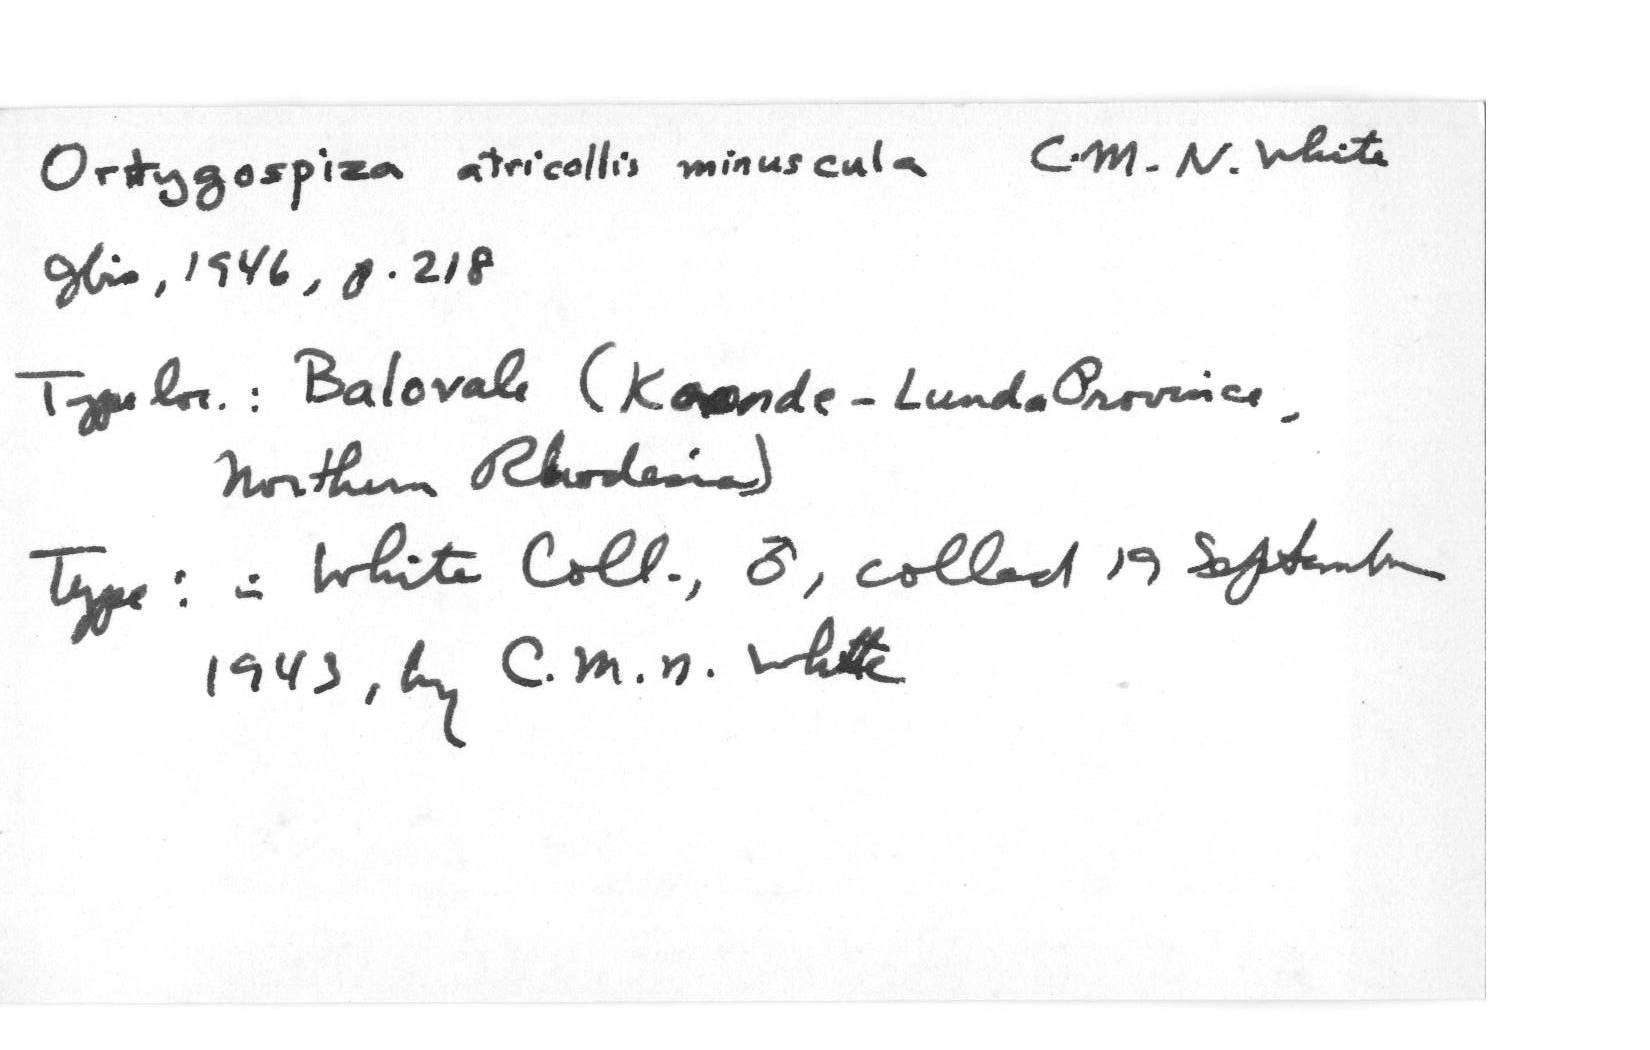 Ortygospiza atricollis minuscula C.M.N. White
Ibis, 1946, p. 218
Type loc.: Balovale (Kaonde-Lunda Province,
Northern Rhodesia)
Type: in White Coll., ♂, colled 19 September
1943, by C.M.N. White